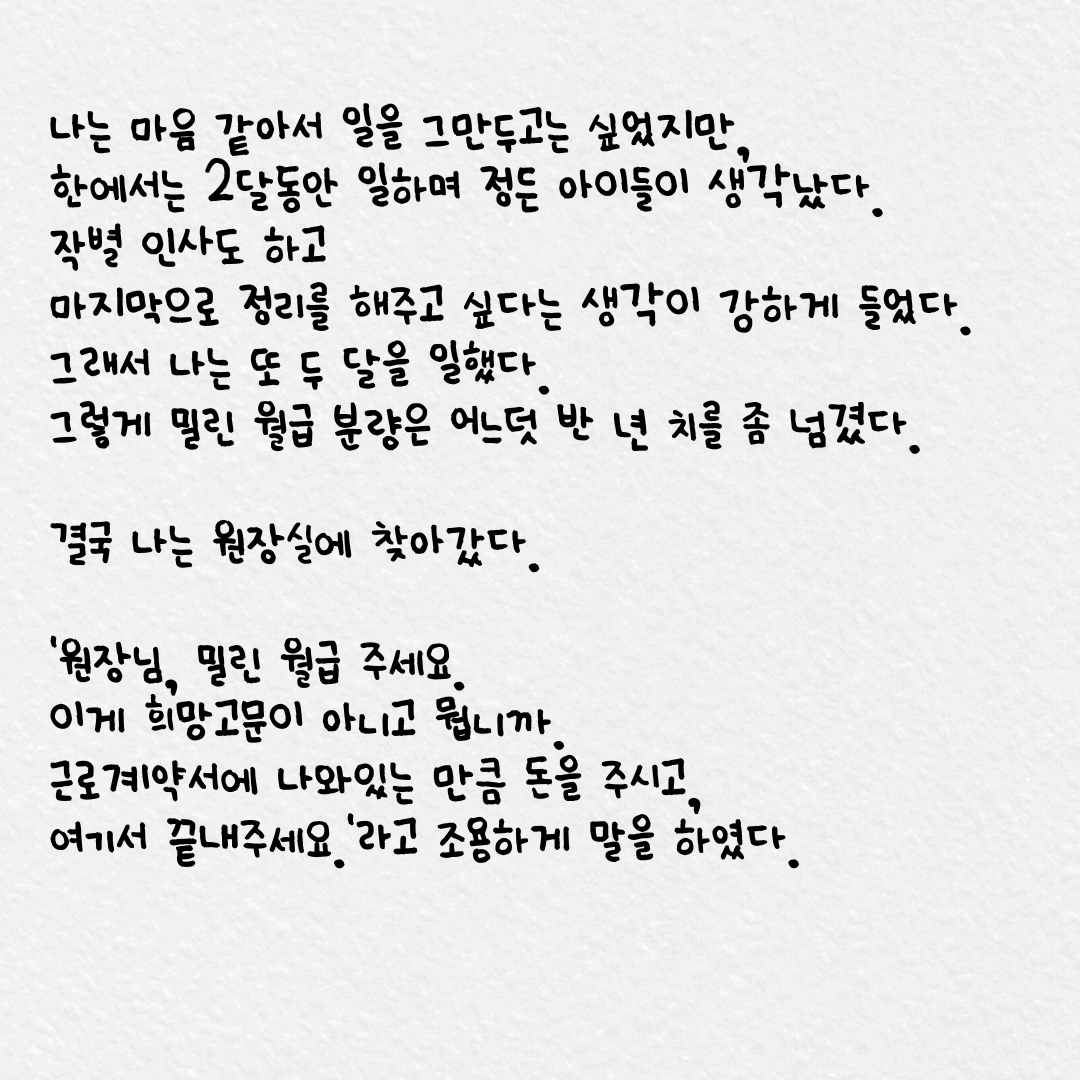 나는 마음 같아서 일을 그만두고는 싶었지만,
한에서는 2달동안 일하며 정든 아이들이 생각났다.
작별 인사도 하고
마지막으로 정리를 해주고 싶다는 생각이 강하게 들었다.
그래서 나는 또 두 달을 일했다.
그렇게 밀린 월급 분량은 어느덧 반 년 치를 좀 넘겼다.
결국 나는 원장실에 찾아갔다.
'원장님, 밀린 월급 주세요.
이게 희망고문이 아니고 뭡니까.
근로계약서에 나와있는 만큼 돈을 주시고,
여기서 끝내주세요.'라고 조용하게 말을 하였다.